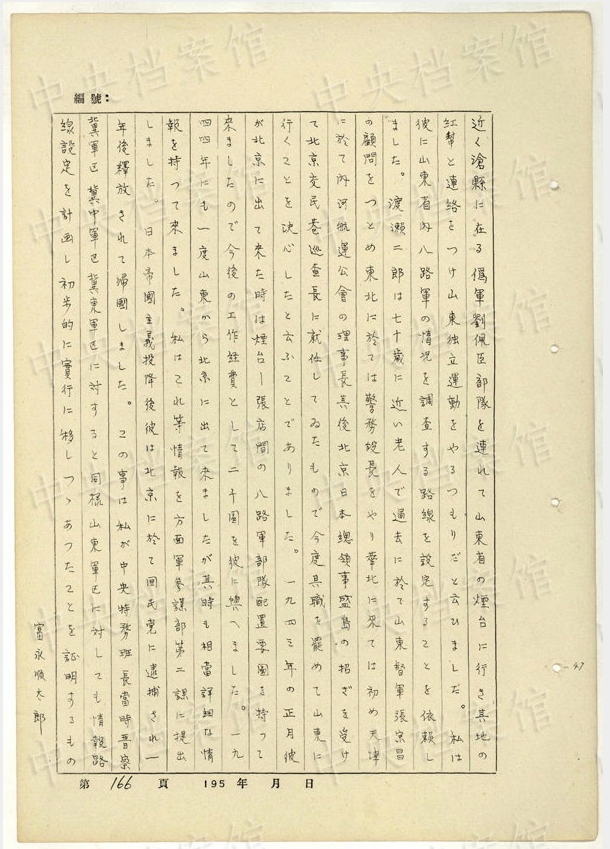 編號:
近く滄縣に在る偽軍劉佩臣部隊を連れて山東省の煙台に行き其地の
紅幫と連絡をつけ山東独立運動をやるつもりだと云ひました。私は
彼に山東省内八路軍の情況を調査する路線を設定することを依頼し
ました。渡瀬二郎は七十歳に近い老人で過去に於て山東督軍張宗昌
の顧問をつとめ東北に於ては警務段長をやり華北に来ては初め天津
に於て内河航運公會の理事長其後北京日本總領事盛島の招ぎを受け
て北京交民巷巡査長に就任してゐたもので今度其職を罷めて山東に
行くことを決心したと云ふことでありました。一九四三年の正月彼
が北京に出て来た時は煙台ー張店間の八路軍部隊配置要図を持って
来ましたので今後の工作経費として二千圓を彼に與へました。一九
四四年にも一度山東から北京に出て来ましたが其時も相當詳細な情
報を持って来ました。私はこれ等情報を方面軍參謀部第二課に提出
しました。日本帝國主義投降後彼は北京に於て国民党に逮捕され一
年後釋放されて帰國しました。この事は私が中央特務班長當時晋察
冀軍区冀中軍区冀東軍区に対すると同様山東軍区に対しても情報路
線設定を計画し初歩的に實行に移しつゝあつたことを証明するもの
富永順太郎
第 166 頁 195 年 月 日
中央档案馆